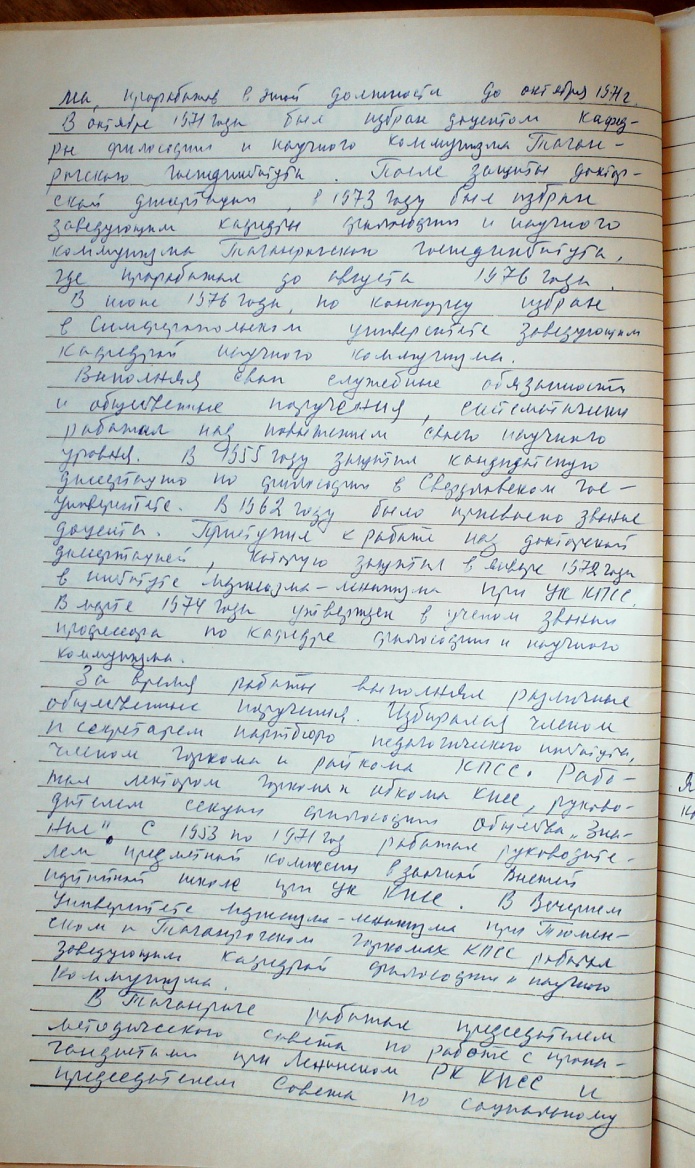 ма, проработав в этой должности до октября 1971 г.
В октябре 1971 года был избран доцентом кафед-
ры философии и научного коммунизма Таган-
рогского госпединститута. После защиты доктор-
ской диссертации, в 1973 году был избран
заведующим кафедры философии и научного
коммунизма Таганрогского госпединститута,
где проработал до августа 1976 года.
В июне 1976 года, по конкурсу избран
в Симферопольском университете заведующим
кафедрой научного коммунизма.
Выполняя свои служебные обязанности
и общественные поручения, систематически
работал над повышением своего научного
уровня. В 1955 году защитил кандидатскую
диссертацию по философии в Свердловском гос-
университете. В 1962 году было присвоено звание
доцента. Приступил к работе над докторской
диссертацией, которую защитил в январе 1972 года
в институте марксизма-ленинизма при ЦК КПСС.
В марте 1974 года утвержден в ученом звании
профессора по кафедре философии и научного
коммунизма.
За время работы выполнял различные
общественные поручения. Избирался членом
и секретарем партбюро педагогического института,
членом горкома и райкома КПСС. Рабо-
тал лектором горкома и обкома КПСС, руково-
дителем секции философии общества „Зна-
ние". С 1953 по 1971 год работал руководите-
лем предметной комиссии в заочной Высшей
партийной школе при ЦК КПСС. В Вечернем
университете марксизма-ленинизма при Тюмен-
ском и Таганрогском горкомах КПСС работал
заведующим кафедрой философии и научного
коммунизма.
В Таганроге работал председателем
методического совета по работе с пропа-
гандистами при Ленинском РК КПСС и
председателем Совета по социальному